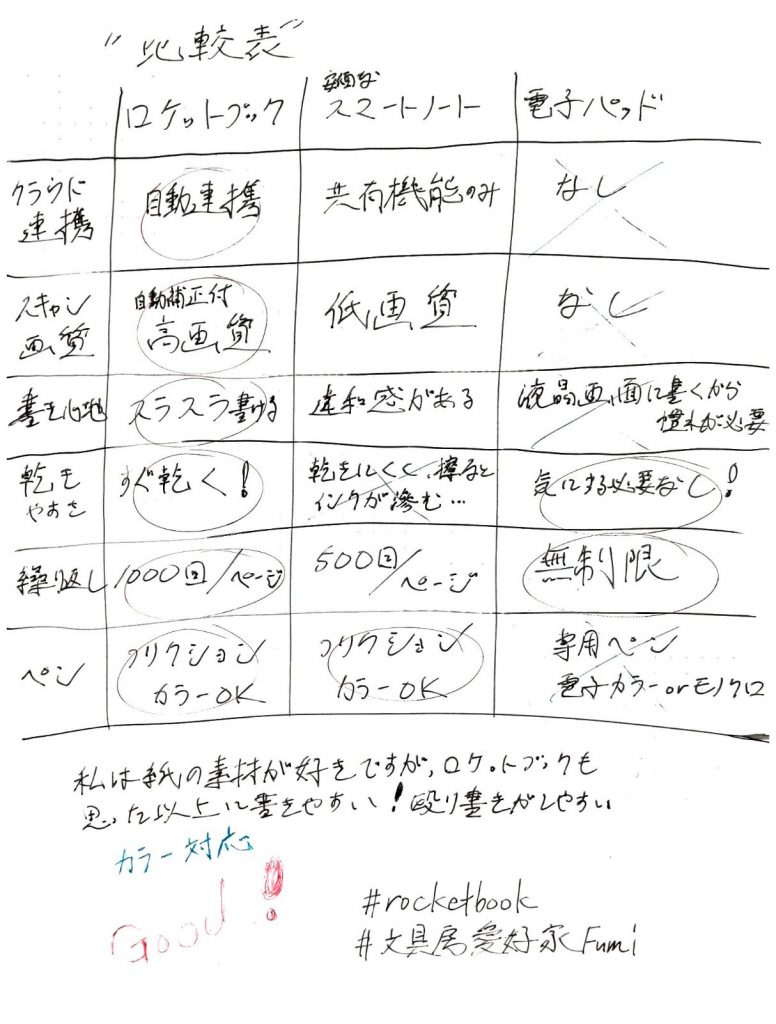 "比較表"
ロケットブック
安価な
スマートノート
電子パッド
クラウド
連携
自動連携
共有機能のみ
なし
スキャン
画質
自動補正付
高画質
低画質
なし
書き心地
スラスラ書ける
違和感がある
液晶画面に書くから
慣れが必要
乾き
やすさ
すぐ乾く!
乾きにくく、擦ると
インクが滲む…
気にする必要なし!
繰り返し
1000回/ページ
500回/
ページ
無制限
ペン
フリクション
カラーOK
フリクション
カラーOK
専用ペン
電子カラーorモノクロ
私は紙の素材が好きですが、ロケットブックも
思った以上に書きやすい!殴り書きがしやすい
カラー対応
Good!
#rocketbook
#文具房愛好家Fumi